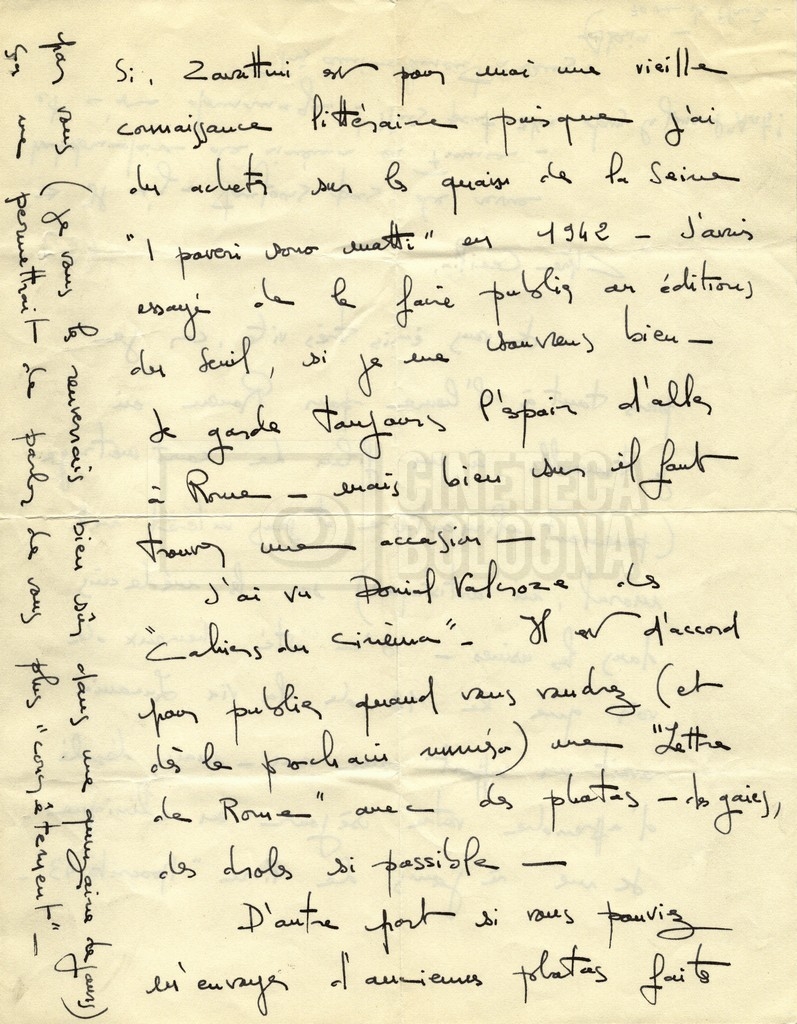 Si, Zavattini est pour moi une vieille
connaissance littéraire puisque j'ai
du acheter sur les quais de la Seine
"I poveri sono matti" en 1942 – J'avais
essayé de le faire publier aux éditions
du Seuil, si je me souviens bien –
Je garde toujours l'espoir d'aller
à Rome – mais bien sur il faut
trouver une occasion –
J'ai vu Doniol Valcroze des
"Cahiers du cinéma" – Il est d'accord
pour publier quand vous voudrez (et
dès le prochain numéro) une "Lettre
de Rome" avec des photos – des gaies,
des droles si possible –
D'autre part si vous pouviez
m'envoyer d'anciennes photos faites
par vous (je vous les renverrais bien sûr dans une quinzaine de jours)
ça me permettrait de parler de vous plus "concrètement" –
CINETECA
BOLOGNA